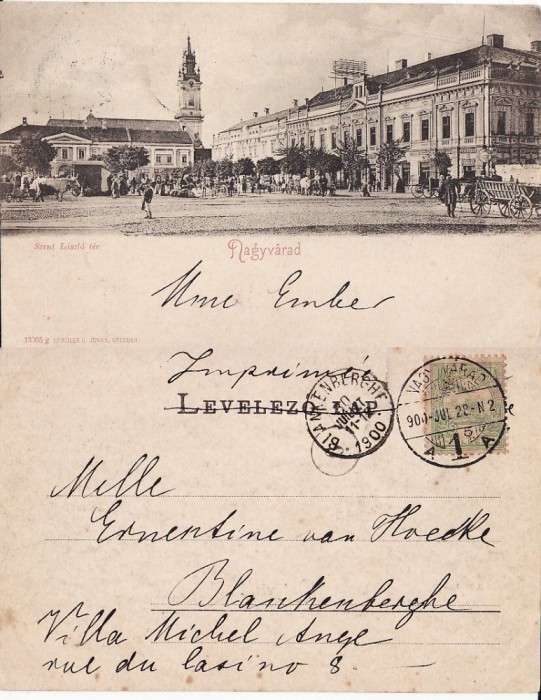 Szent László tér
Nagyvárad
Mme Ember
Imprimé
LEVELEZŐ LAP
BLANKENBERGHE
JUILLET
11-12
1900
NAGYVÁRAD
900-JUL 20-N2
A 1 A
Mille
Ernentine van Hoecke
Blankenberghe
Villa Michel Ange
rue du casino 8